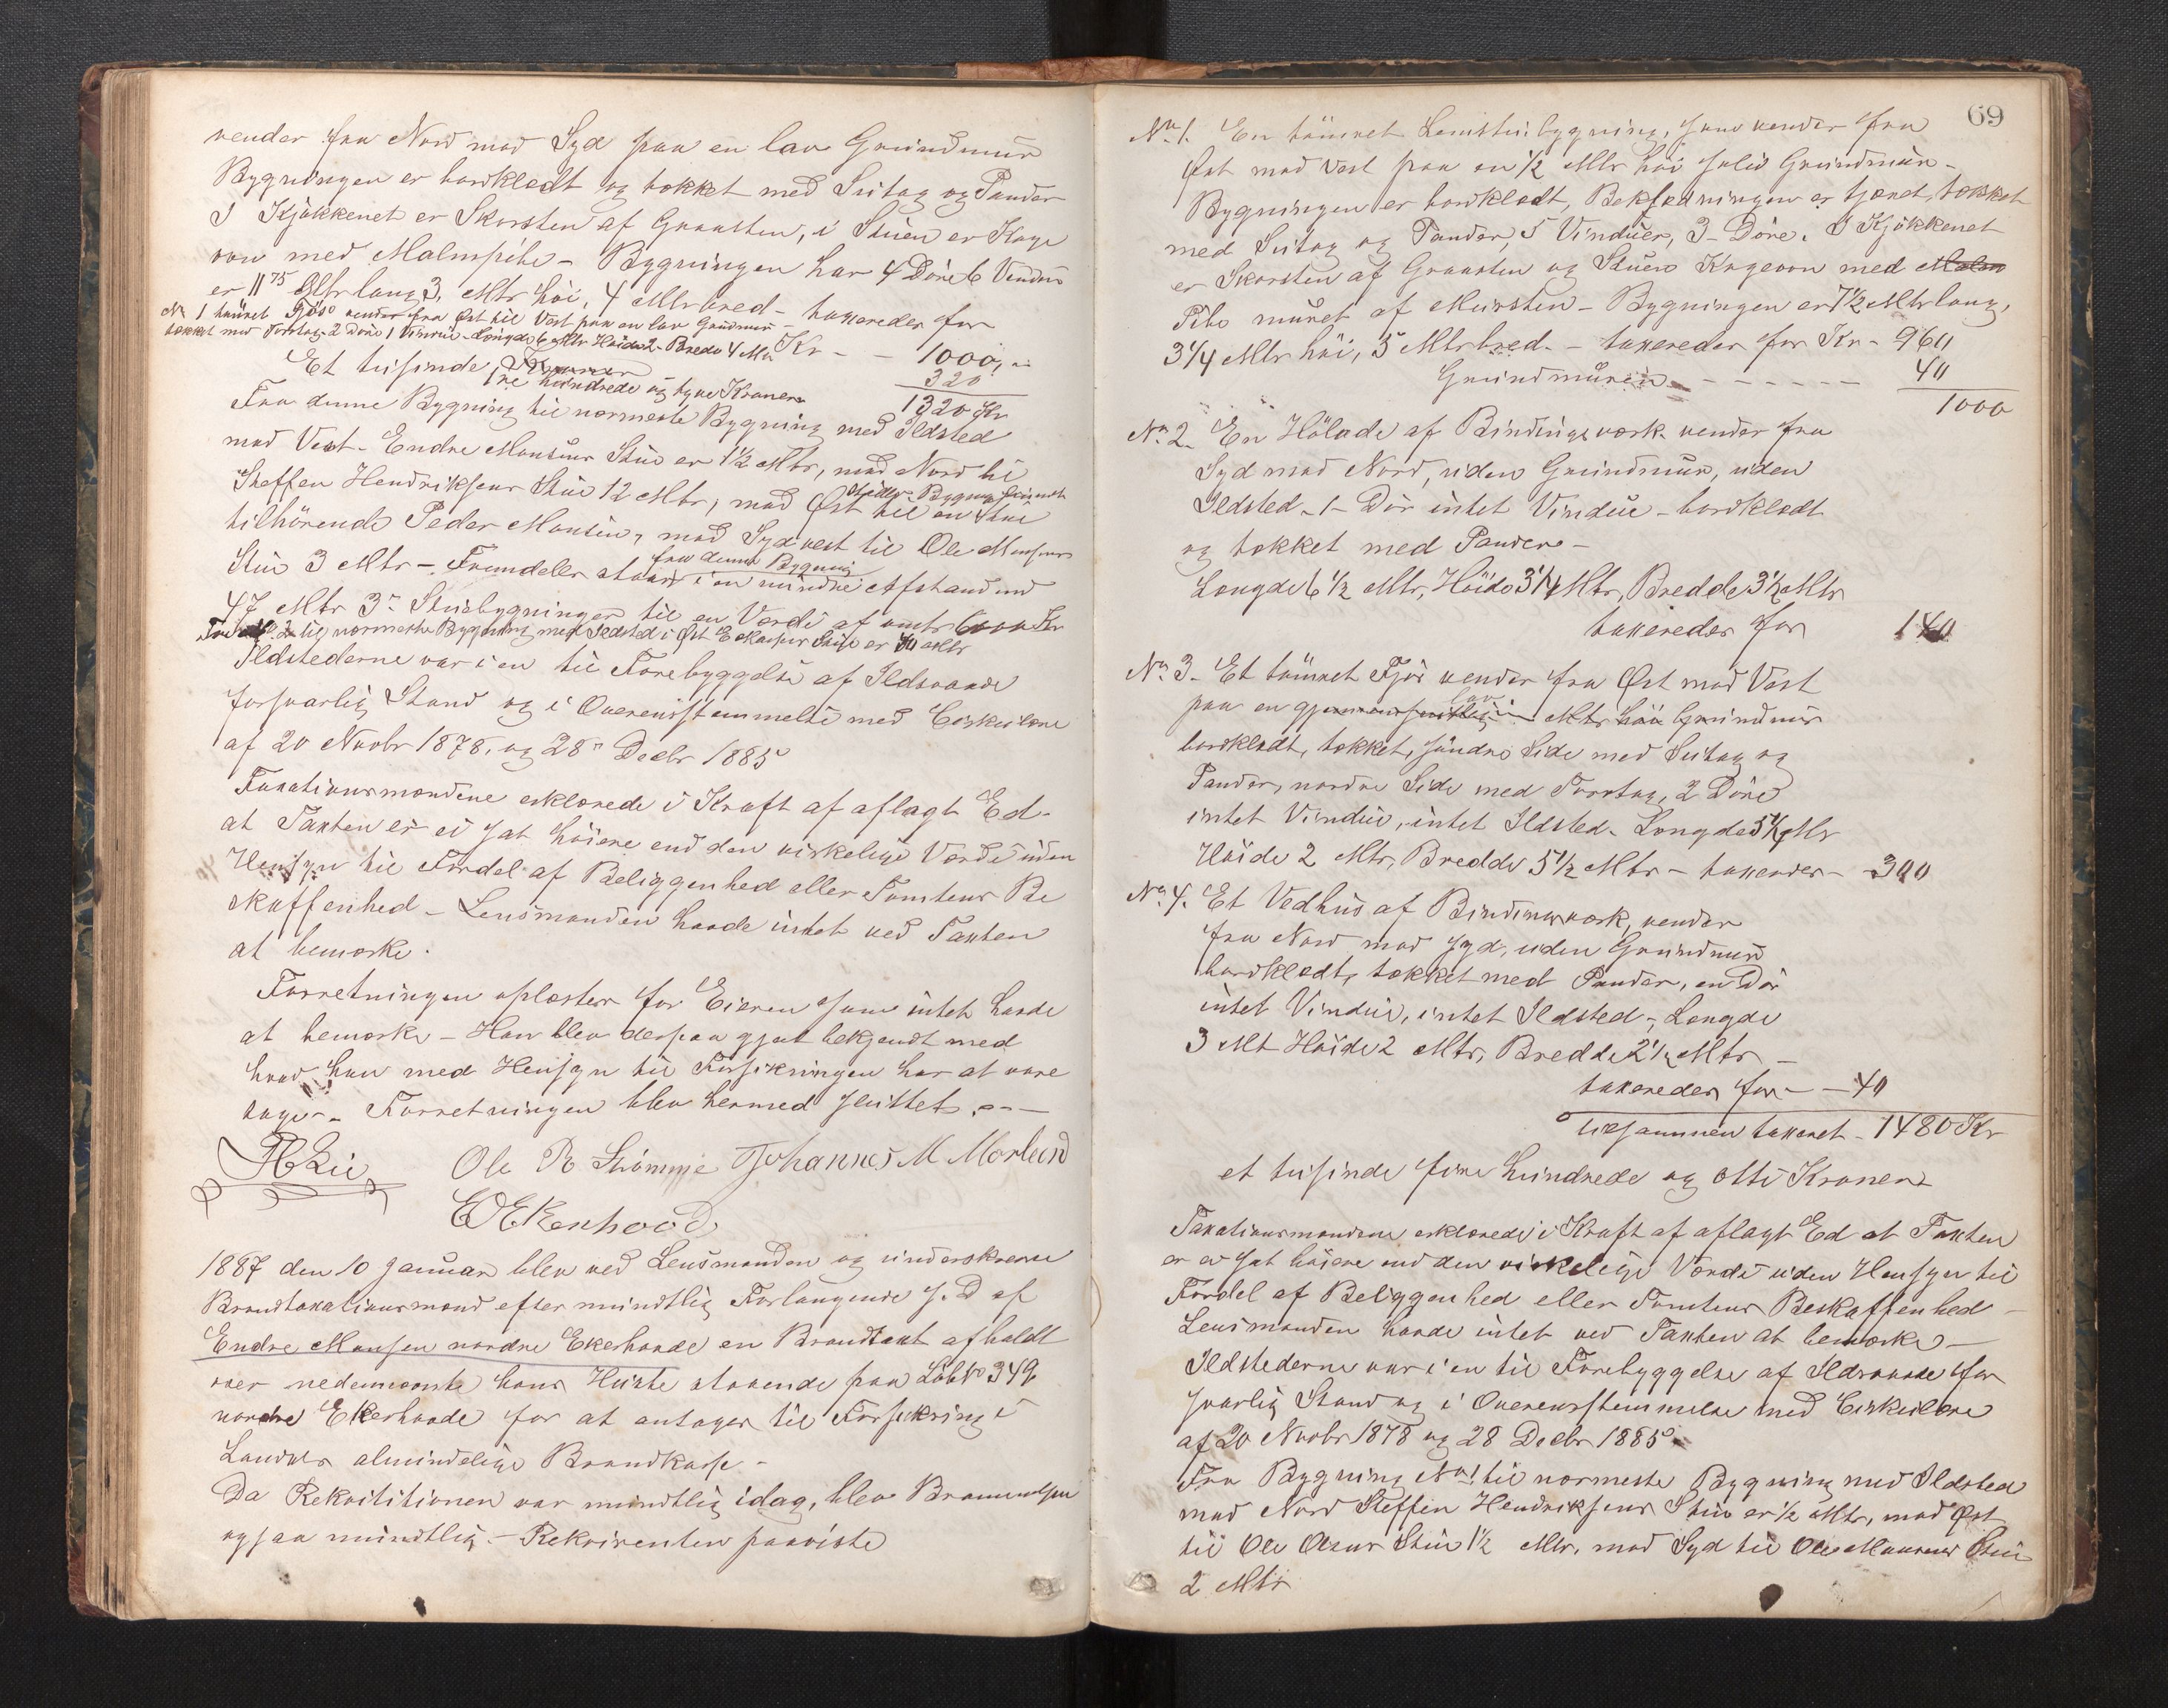 vender fra Nord mod Syd paa en lav Grundmur
Bygningen er bordklædt og tækket med Sutag og Pander
I Kjøkkenet er Skorsten af Graasten, i Stuen er Koge
ovn med Malmpibe - Bygningen har 4 Døre 6 Vindue
er 11 75 Mtr lang, 3, Mtr høi, 4 Mtr bred - taxeredes for
No 1 tømret Fjøs vender fra Øst til Vest paa en lav Grundmur -
tækket med Torvtag - 2 Døre 1 Vindue - Længde 6 Mtr Høide 2 - Bredde 4 Mtr Kr - - 1000,
Et tusinde 320
tre hundrede og tyve Kroner 1320 Kr
Fra denne Bygning til nærmeste Bygning med Ildsted
mod Vest - Endre Monsens Stue er 1½ Mtr, mod Nord til
Steffen Hendriksens Stue 12 Mtr, mod Øst til en Stue
tilhørende Peder Monsen, mod Sydvest til Ole Monsens
Stue 3 Mtr - Fremdeles staar i en mindre Afstand end
fra denne Bygning
47 Mtr 3 Stuebygninger til en Værdi af omtr 6000 Kr
til nærmeste Bygning med Ildsted i Øst Stue er 40 Mtr
Ildstederne var i en til Forebyggelse af Ildsvaade
forsvarlig Stand og i Overensstemmelse med Cirkulære
af 20 Novbr 1878, og 28 Decbr 1885
Taxationsmændene erklærede i Kraft af aflagt Ed -
at Taxten er ei sat høiere end den virkelige Værdi uden
Hensyn til Fordel af Beliggenhed eller Tomtens Be
skaffenhed - Lensmanden havde intet ved Taxten
at bemærke.
Forretningen oplæstes for Eieren som intet havde
at bemærke - Han blev derpaa gjort bekjendt med
hvad han med Hensyn til Forsikringen har at vare
tage - Forretningen blev hermed sluttet. - -
Lie Ole R Strømme Johannes M Morland
E O Ekerhovd
1887 den 10 Januar blev ved Lensmanden og underskrevne
Brandtaxationsmænd efter mundtlig Forlangende s. D af
Endre Monsen nordre Ekerhovde en Brandtaxt afholdt
over nedennævnte hans Huse staaende paa Løbno 349
nordre Ekerhovde for at antages til Forsikring i
Landets almindelige Brandkasse -
Da Rekvisitionen var mundtlig idag, blev
ogsaa mundtlig. - Rekvirenten paaviste
69
No. 1. En tømret Lemstuebygning, som vender fra
Øst mod Vest paa en ½ Mtr høi solid Grundmur -
Bygningen er bordklædt, Bekledningen er tjæret, tækket
med Sutag og Pander, 5 Vinduer, 3 - Døre. I Kjøkkenet
er Skorsten af Graasten og Stuens Kogeovn med Malm
Pibe muret af Mursten - Bygningen er 7½ Mtr lang,
3 1/4 Mtr høi, 5 Mtr bred. - taxeredes for Kr - 960
Grundmuren - - - - - - 40
1000
No. 2. En Hølade af Bindingsværk vender fra
Syd mod Nord, uden Grundmur, uden
Ildsted - 1 - Dør intet Vindue - bordklædt
og tækket med Pander -
Længde 6 ½ Mtr, Høide 3 1/4 Mtr, Bredde 3 ½ Mtr
taxeredes for 140
No 3. Et tømret Fjøs vender fra Øst mod Vest
paa en gjennemsnitlig lav Mtr høi Grundmur
bordklædt, tækket, søndre Side med Sutag og
Pander, nordre Side med Torvtag, 2 Døre
intet Vindue, intet Ildsted - Længde 5½ Mtr
Høide 2 Mtr, Bredde 5½ Mtr - taxeredes - 300
No. 4. Et Vedhus af Bindingsværk, vender
fra Nord mod Syd, uden Grundmur
bordklædt, tækket med Pander, en Dør
intet Vindue, intet Ildsted -, Længde
3 Mt Høide 2 Mtr, Bredde 2½ Mtr -
taxeredes for - - 40
tilsammen taxeret - 1480 Kr
et tusinde fire hundrede og otti Kroner
Taxationsmændene erklærede i Kraft af aflagt Ed at Taxten
er ei sat høiere end den virkelige Værdi uden Hensyn til
Fordel af Beliggenhed eller Tomtens Beskaffenhed -
Lensmanden havde intet ved Taxten at bemærke -
Ildstederne var i en til Forebyggelse af Ildsvaade for
svarlig Stand og i Overensstemmelse med Cirkulære
af 20 Novbr 1878 og 28 Decbr 1885 -
Fra Bygning No 1 til nærmeste Bygning med Ildsted
mod Nord Steffen Hendriksens Stue er ½ Mtr, mod Øst
til Ole Olsens Stue 1½ Mtr. mod Syd til Ole Monsens Stue
2 Mtr